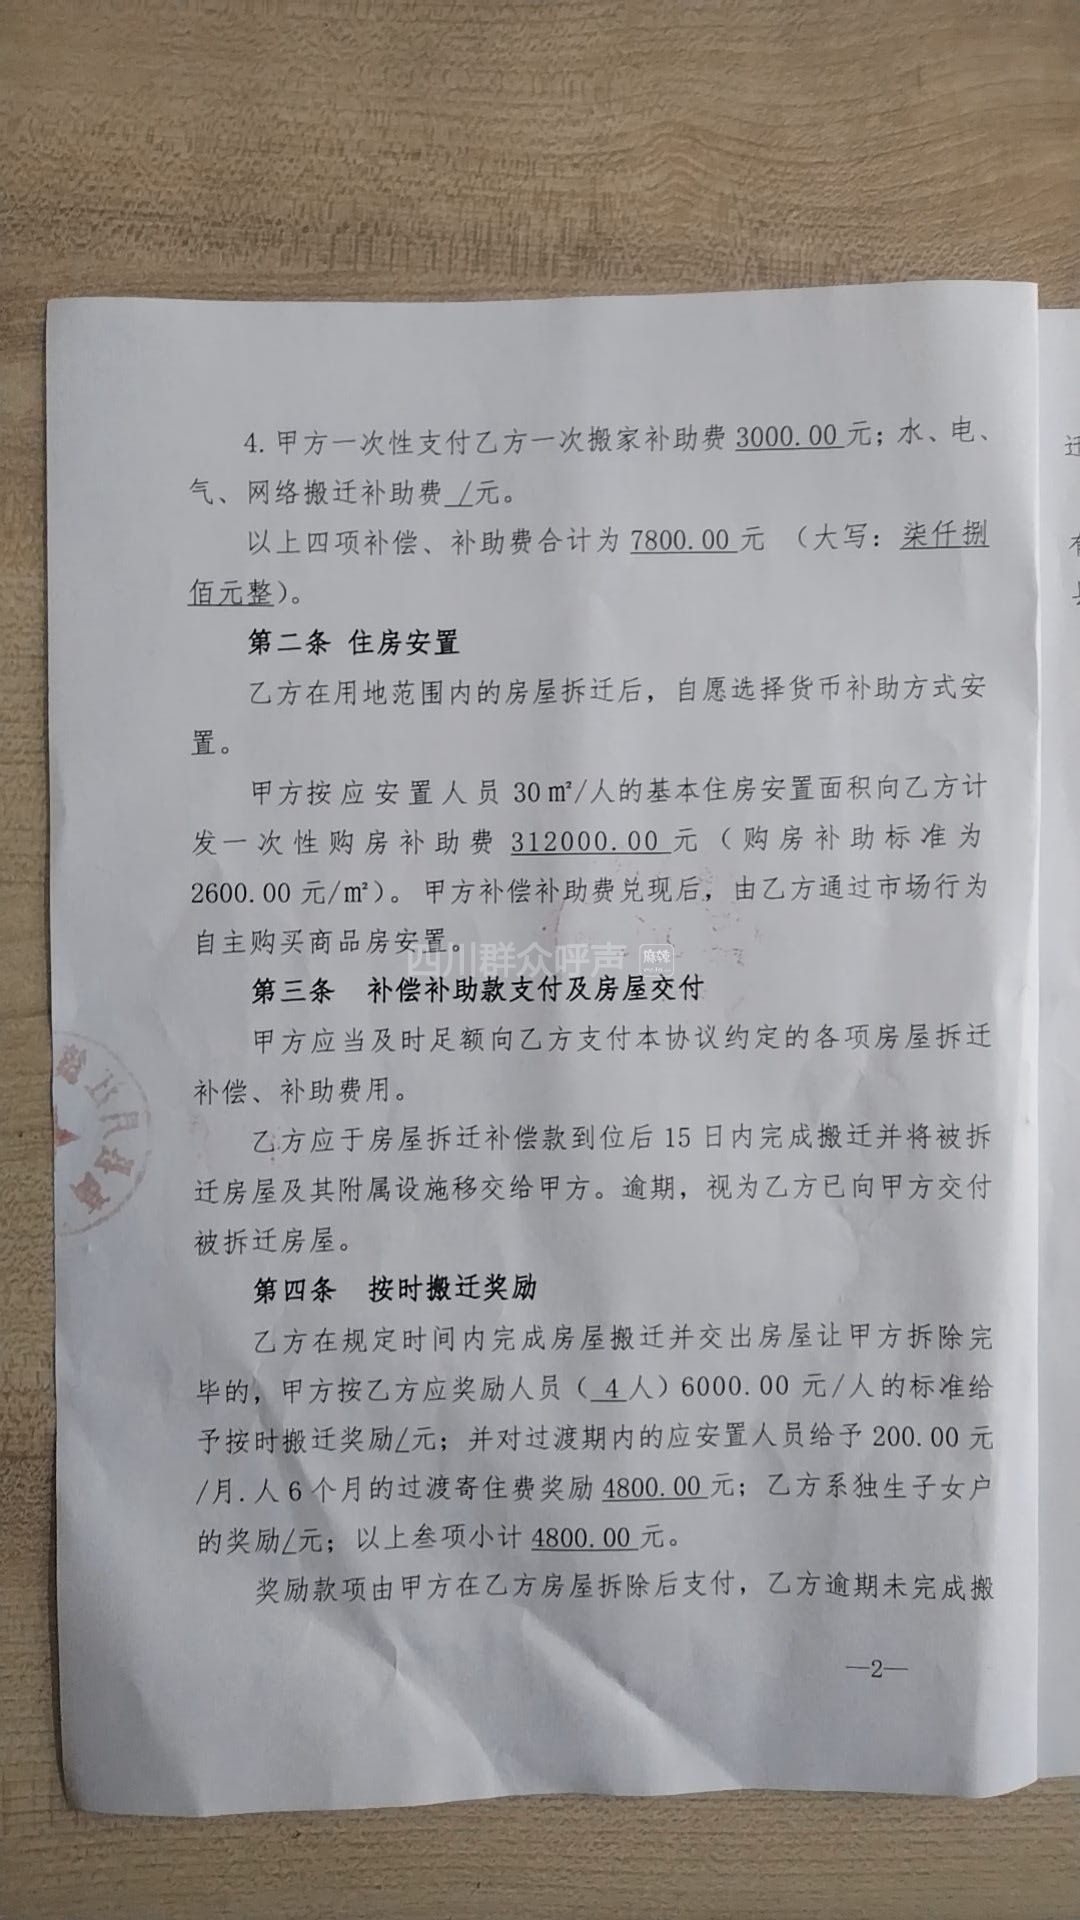 4. 甲方一次性支付乙方一次搬家补助费 3000.00 元；水、电、
气、网络搬迁补助费 / 元。
以上四项补偿、补助费合计为 7800.00 元 （大写：柒仟捌
佰元整）。
第二条 住房安置
乙方在用地范围内的房屋拆迁后，自愿选择货币补助方式安
置。
甲方按应安置人员 30 ㎡/人的基本住房安置面积向乙方计
发一次性购房补助费 312000.00 元（购房补助标准为
2600.00 元/㎡）。甲方补偿补助费兑现后，由乙方通过市场行为
自主购买商品房安置。
四川群众呼声 麻辣
第三条 补偿补助款支付及房屋交付
甲方应当及时足额向乙方支付本协议约定的各项房屋拆迁
补偿、补助费用。
乙方应于房屋拆迁补偿款到位后 15 日内完成搬迁并将被拆
迁房屋及其附属设施移交给甲方。逾期，视为乙方已向甲方交付
被拆迁房屋。
第四条 按时搬迁奖励
乙方在规定时间内完成房屋搬迁并交出房屋让甲方拆除完
毕的，甲方按乙方应奖励人员（ 4 人）6000.00 元/人的标准给
予按时搬迁奖励/元；并对过渡期内的应安置人员给予 200.00 元
/月.人 6 个月的过渡寄住费奖励 4800.00 元；乙方系独生子女户
的奖励/元；以上叁项小计 4800.00 元。
奖励款项由甲方在乙方房屋拆除后支付，乙方逾期未完成搬
—2—